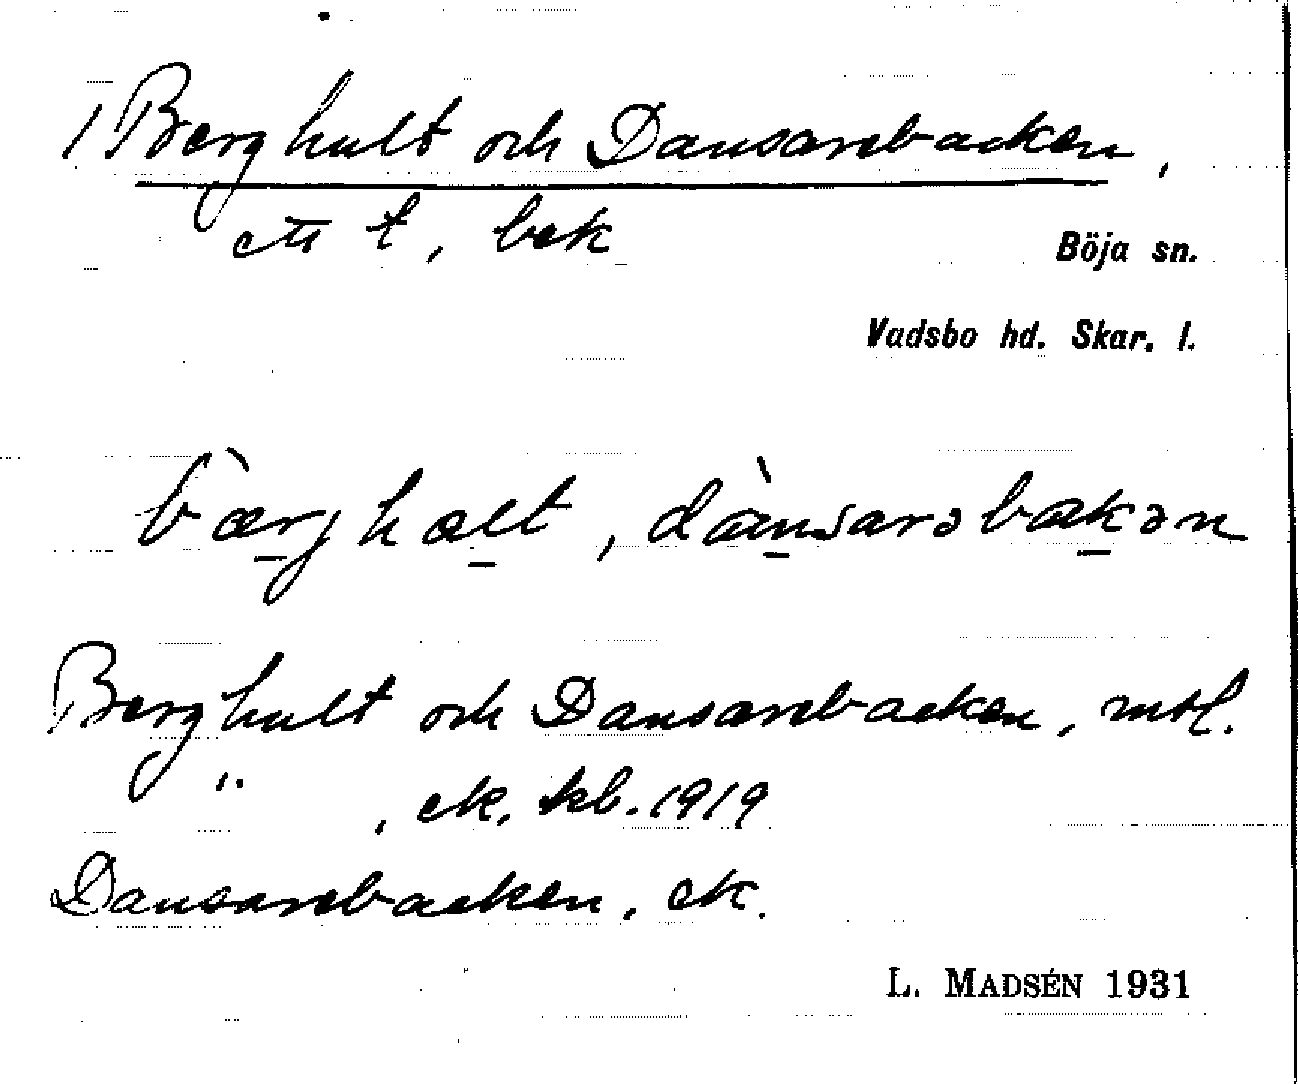 1 Berghult och Dansarebacken,
ett t, bek
Böja sn.
Vadsbo hd. Skar. l.
bæ̀rjhælt, dànsarəbakən
Berghult och Dansarebacken, mtl.
" , ek, kb. 1919
Dansarebacken, ek.
L. MADSÉN 1931